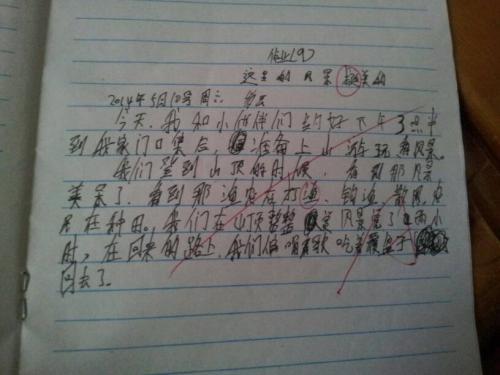 作业(9)
这里的风景挺美的
2014年5月10号 周六
今天,我和小伙伴们约好下午3点半
到我家门口集合,准备上山游玩看风景。
我们望到山顶的时候,看到那风景
美呆了,看到那渔农在打渔,钓渔,散
在种田,我们在山顶整整风景览了两小
时,在回来的路上,我们们唱着歌吃着
回去了。